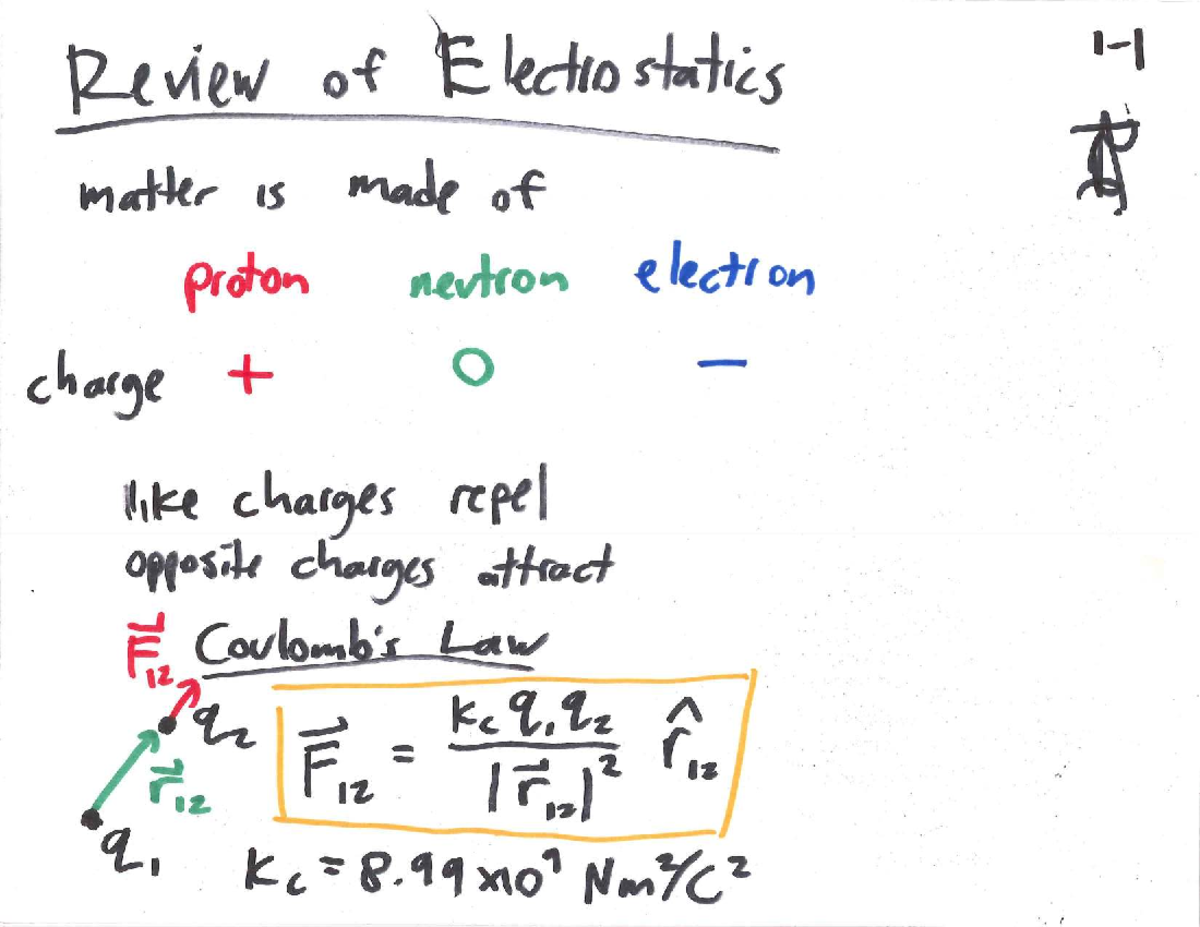 Review of Electrostatics
1-1
matter is made of
proton neutron electron
charge + 0 −
like charges repel
opposite charges attract
F⃗₁₂ Coulomb's Law
q₂
r⃗₁₂
q₁
F⃗₁₂ = k_c q₁ q₂ / |r⃗₁₂|² r̂₁₂
k_c = 8.99 x10⁹ Nm²/C²